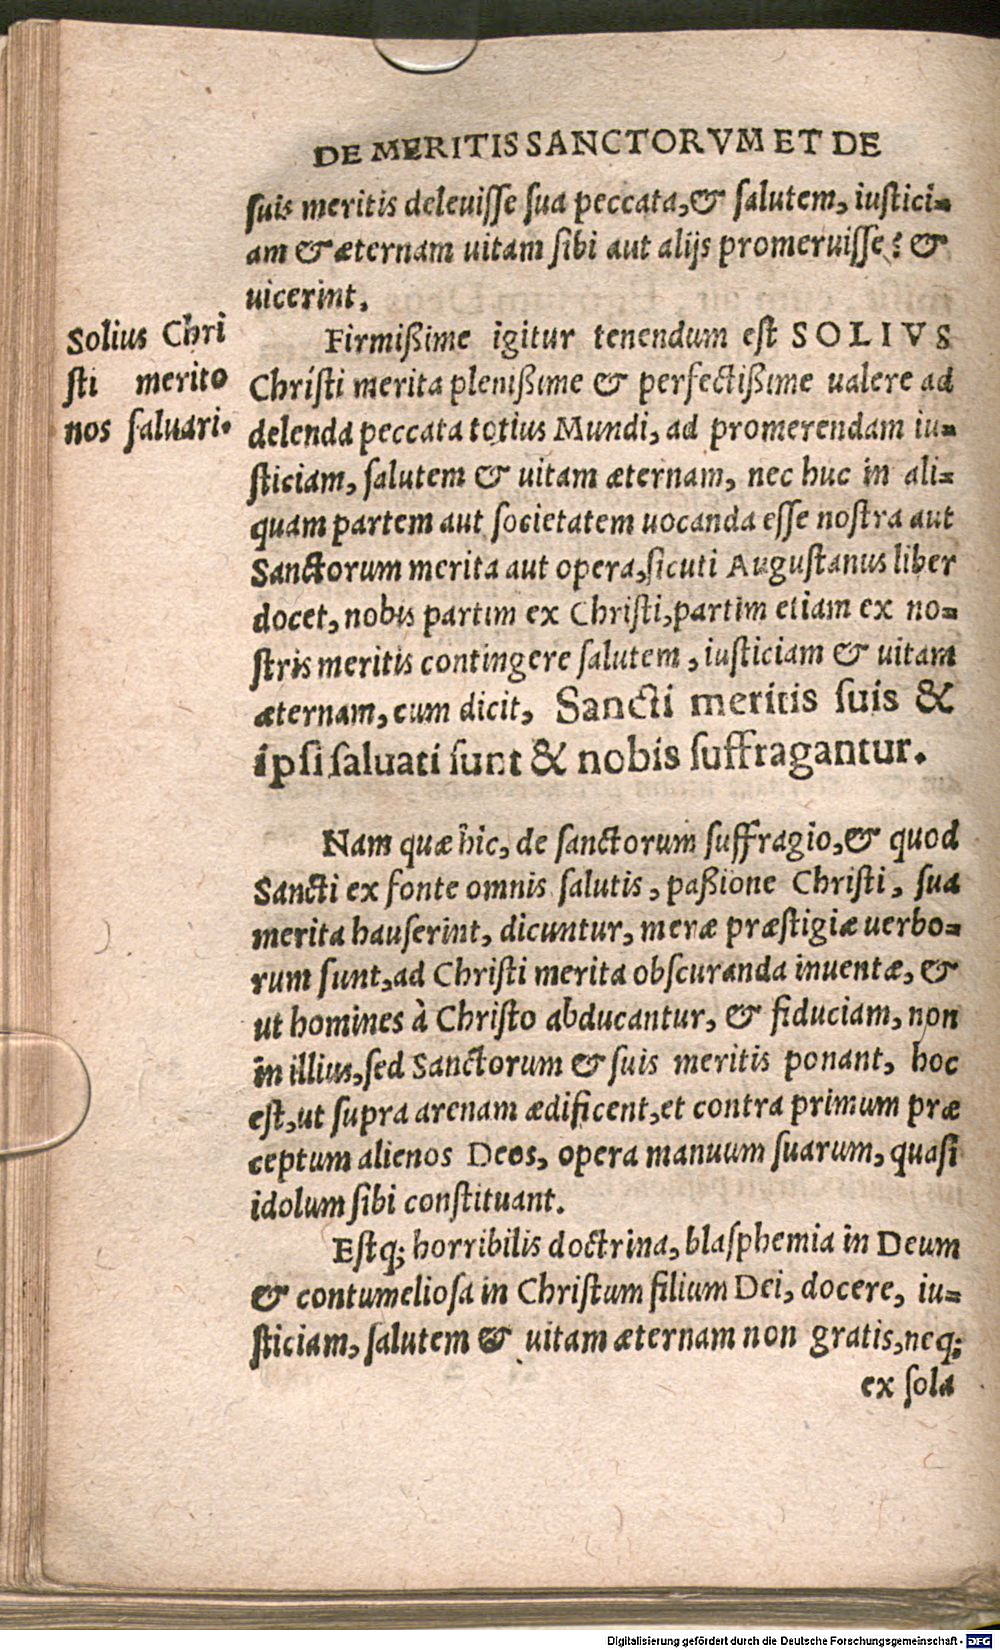 DE MERITIS SANCTORVM ET DE
suis meritis deleuisse sua peccata, & salutem, iustici-
am & æternam uitam sibi aut alijs promeruisse? &
uicerint.
Solius Chri
sti merito
nos saluari.
Firmißime igitur tenendum est SOLIVS
Christi merita plenißime & perfectißime ualere ad
delenda peccata totius Mundi, ad promerendam iu-
sticiam, salutem & uitam æternam, nec huc in ali-
quam partem aut societatem uocanda esse nostra aut
Sanctorum merita aut opera, sicuti Augustanus liber
docet, nobis partim ex Christi, partim etiam ex no-
stris meritis contingere salutem, iusticiam & uitam
æternam, cum dicit, Sancti meritis suis &
ipsi saluati sunt & nobis suffragantur.
Nam quæ hic, de sanctorum suffragio, & quod
Sancti ex fonte omnis salutis, paßione Christi, sua
merita hauserint, dicuntur, meræ præstigiæ uerbo-
rum sunt, ad Christi merita obscuranda inuentæ, &
ut homines à Christo abducantur, & fiduciam, non
in illius, sed Sanctorum & suis meritis ponant, hoc
est, ut supra arenam ædificent, et contra primum præ
ceptum alienos Deos, opera manuum suarum, quasi
idolum sibi constituant.
Estq; horribilis doctrina, blasphemia in Deum
& contumeliosa in Christum filium Dei, docere, iu-
sticiam, salutem & uitam æternam non gratis, neq;
ex sola
Digitalisierung gefördert durch die Deutsche Forschungsgemeinschaft - DFG